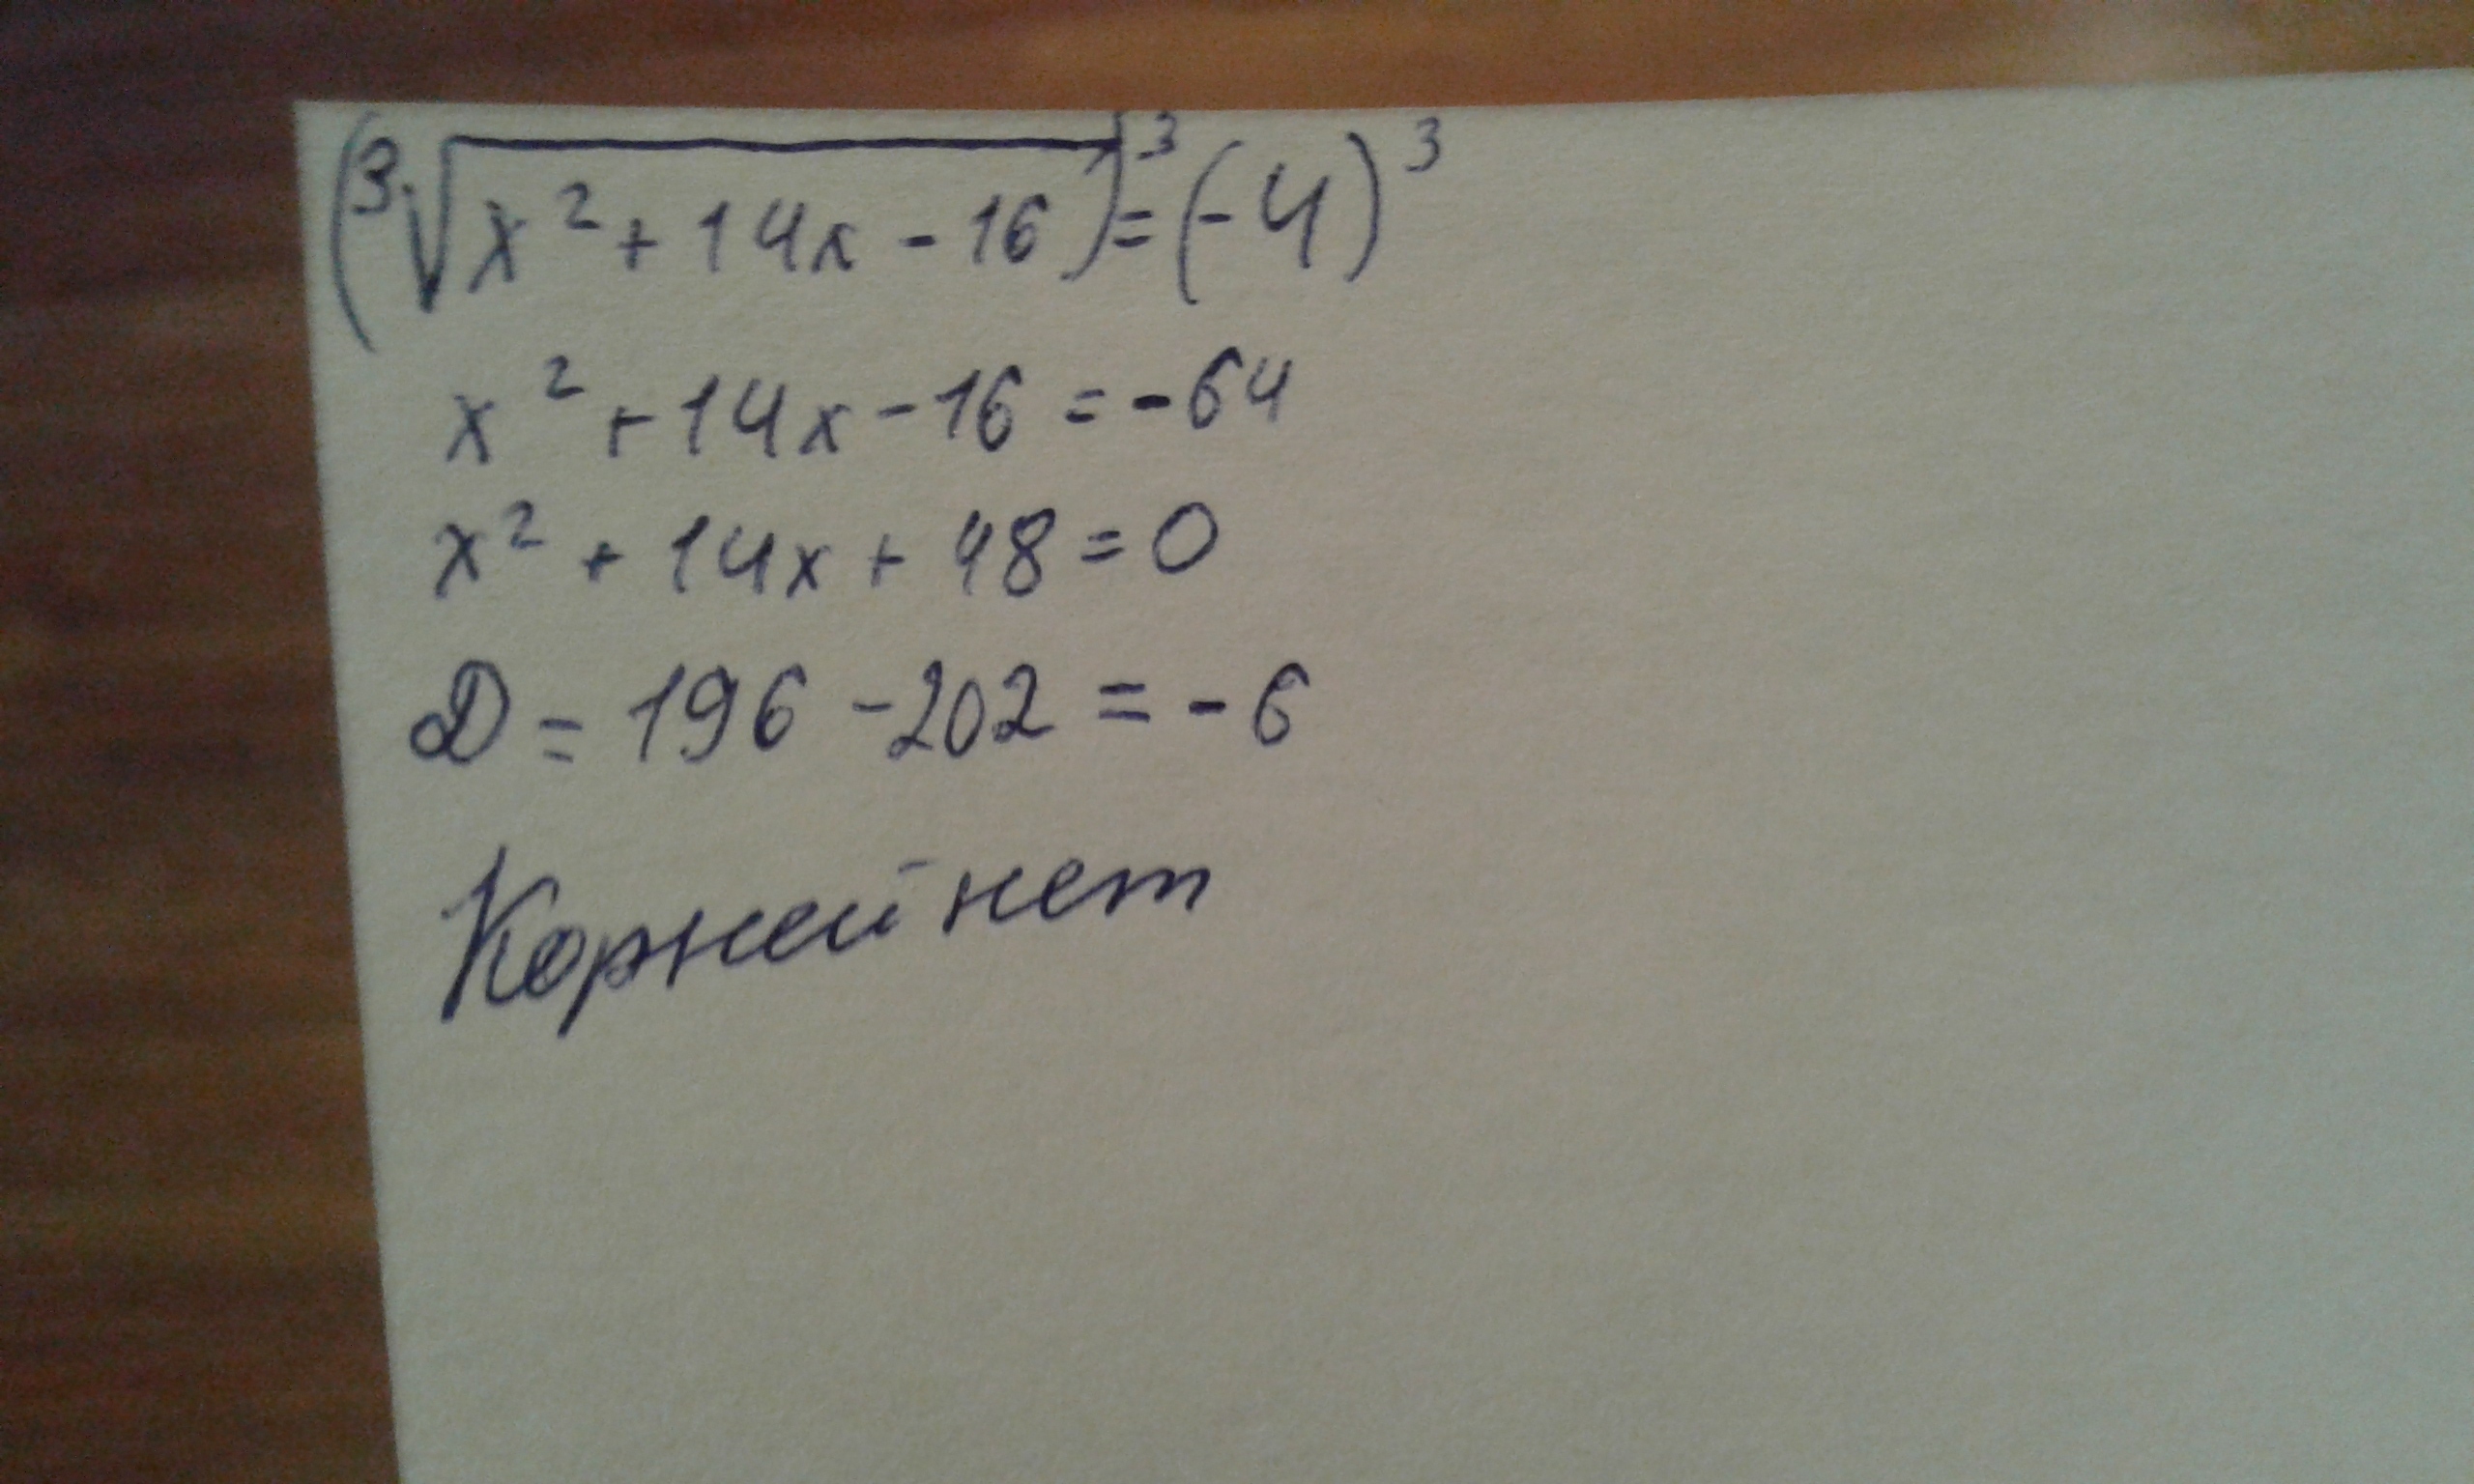 (³√(x² + 14x - 16))³ = (-4)³
x² + 14x - 16 = - 64
x² + 14x + 48 = 0
D = 196 - 202 = - 6
Корней нет